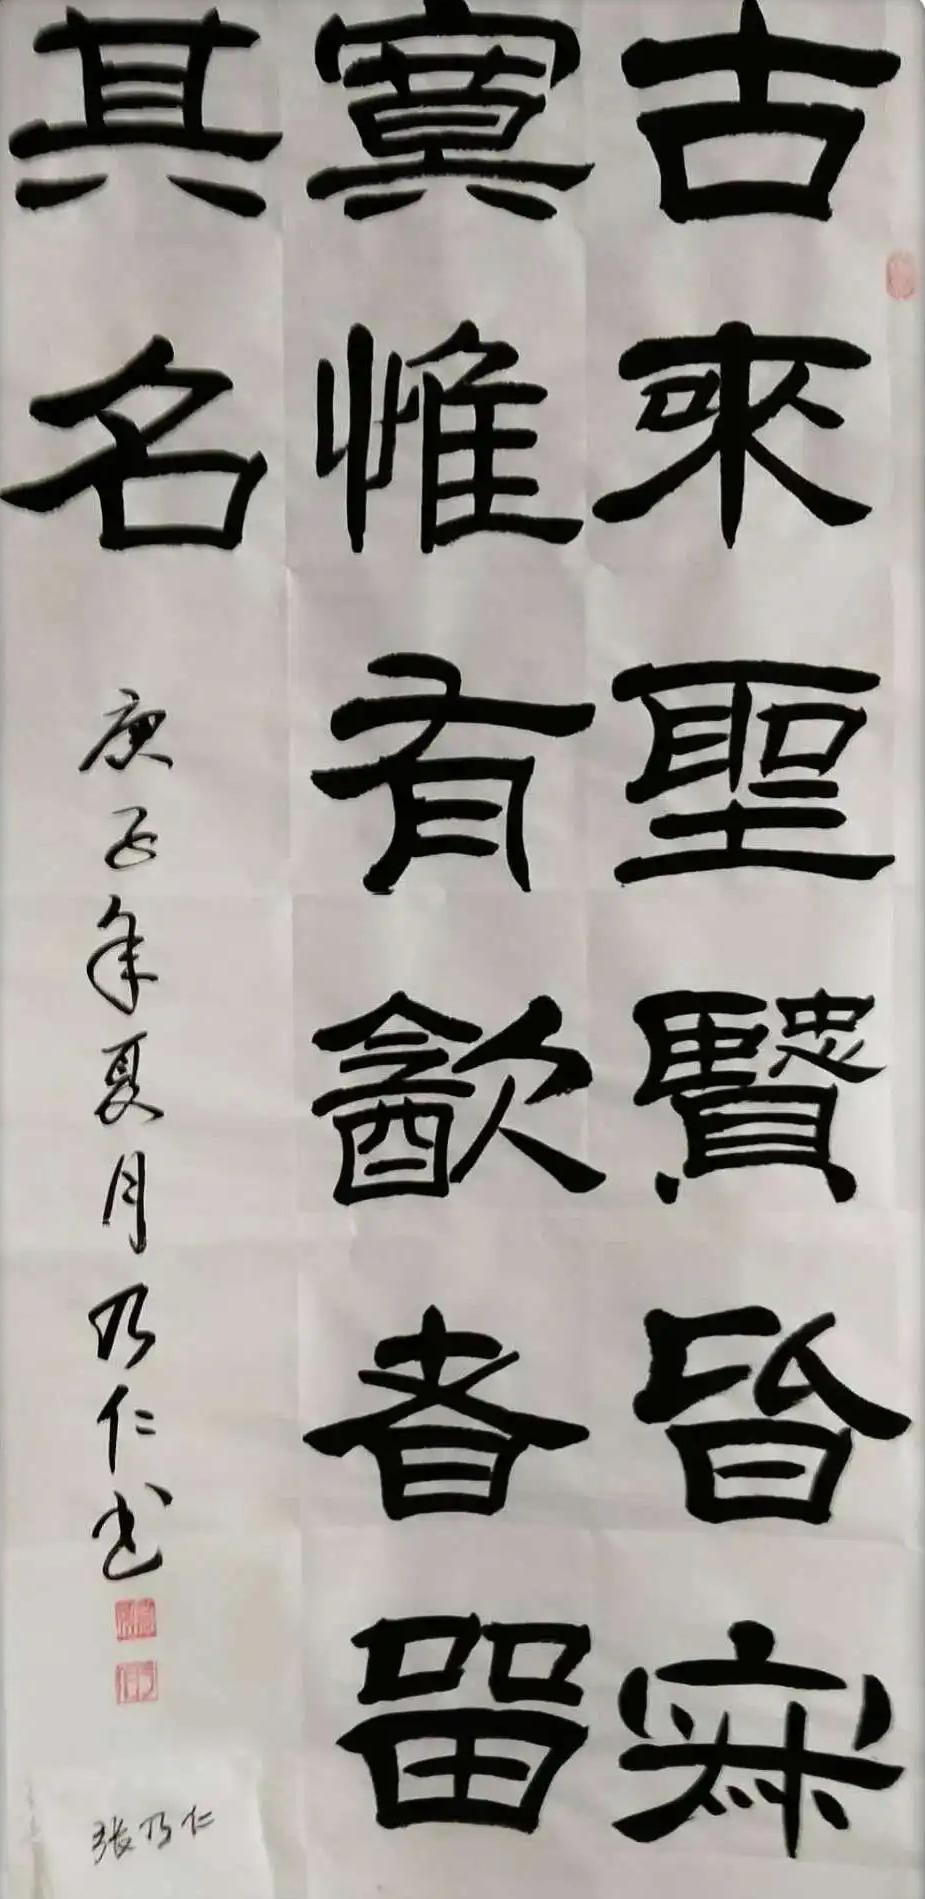 古來聖賢皆寂
寞惟有飲者留
其名
庚子年夏月乃仁书
张乃仁